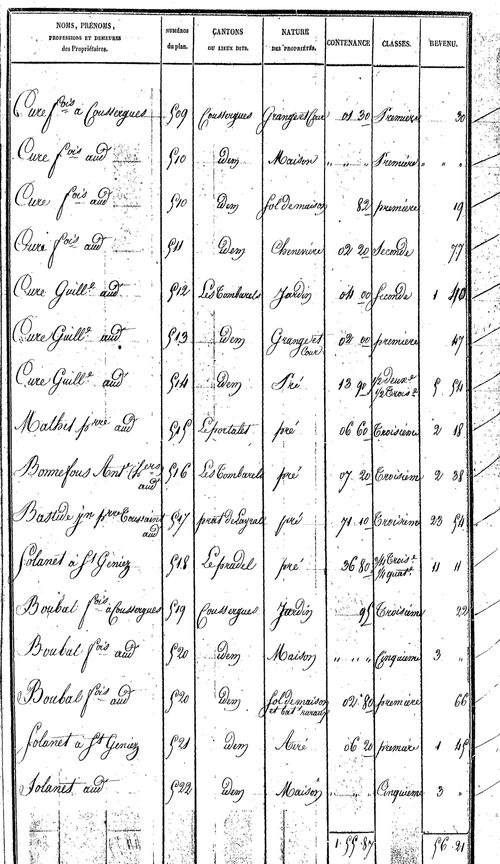 NOMS, PRÉNOMS, PROFESSIONS ET DEMEURES des Propriétaires. NUMÉROS du plan. CANTONS OU LIEUX DITS. NATURE DES PROPRIÉTÉS. CONTENANCE. CLASSES. REVENU.
Cure fois à Coussergues 509 Coussergues Grange et Cour 01 30 Première 30
Cure fois aud 510 idem Maison " " " Première " " "
Cure fois aud 510 idem sol de maison 82 première 19
Cure fois aud 511 idem Cheneviere 02 20 Seconde 77
Cure Guille aud 512 Les Combarels Jardin 04 00 Seconde 1 40
Cure Guille aud 513 idem Grange et Cour 02 00 première 47
Cure Guille aud 514 idem Pré 13 90 1/2 deuxe 1/2 Troise 5 54
Mathet prre aud 515 Le portalet pré 06 60 Troisième 2 18
Bonnefous Ant. hers aud 516 Les Combarels pré 07 20 Troisième 2 38
Bastide jn prre Toussaint aud 517 prat de Layral pré 71 10 Troisième 23 54
Solanet à St Geniez 518 Le pradel pré 36 80 3/4 Trois.e 1/4 quat.e 11 11
Boubal fois à Coussergues 519 Coussergues Jardin 95 Troisième 22
Boubal fois aud 520 idem Maison " " " Cinquieme 3 "
Boubal fois aud 520 idem Sol de maison et bat. rural 02 80 première 66
Solanet à St Geniez 521 idem Aire 06 20 première 1 45
Solanet aud 522 idem Maison " " Cinquieme 3 "
1 55 87 56 21